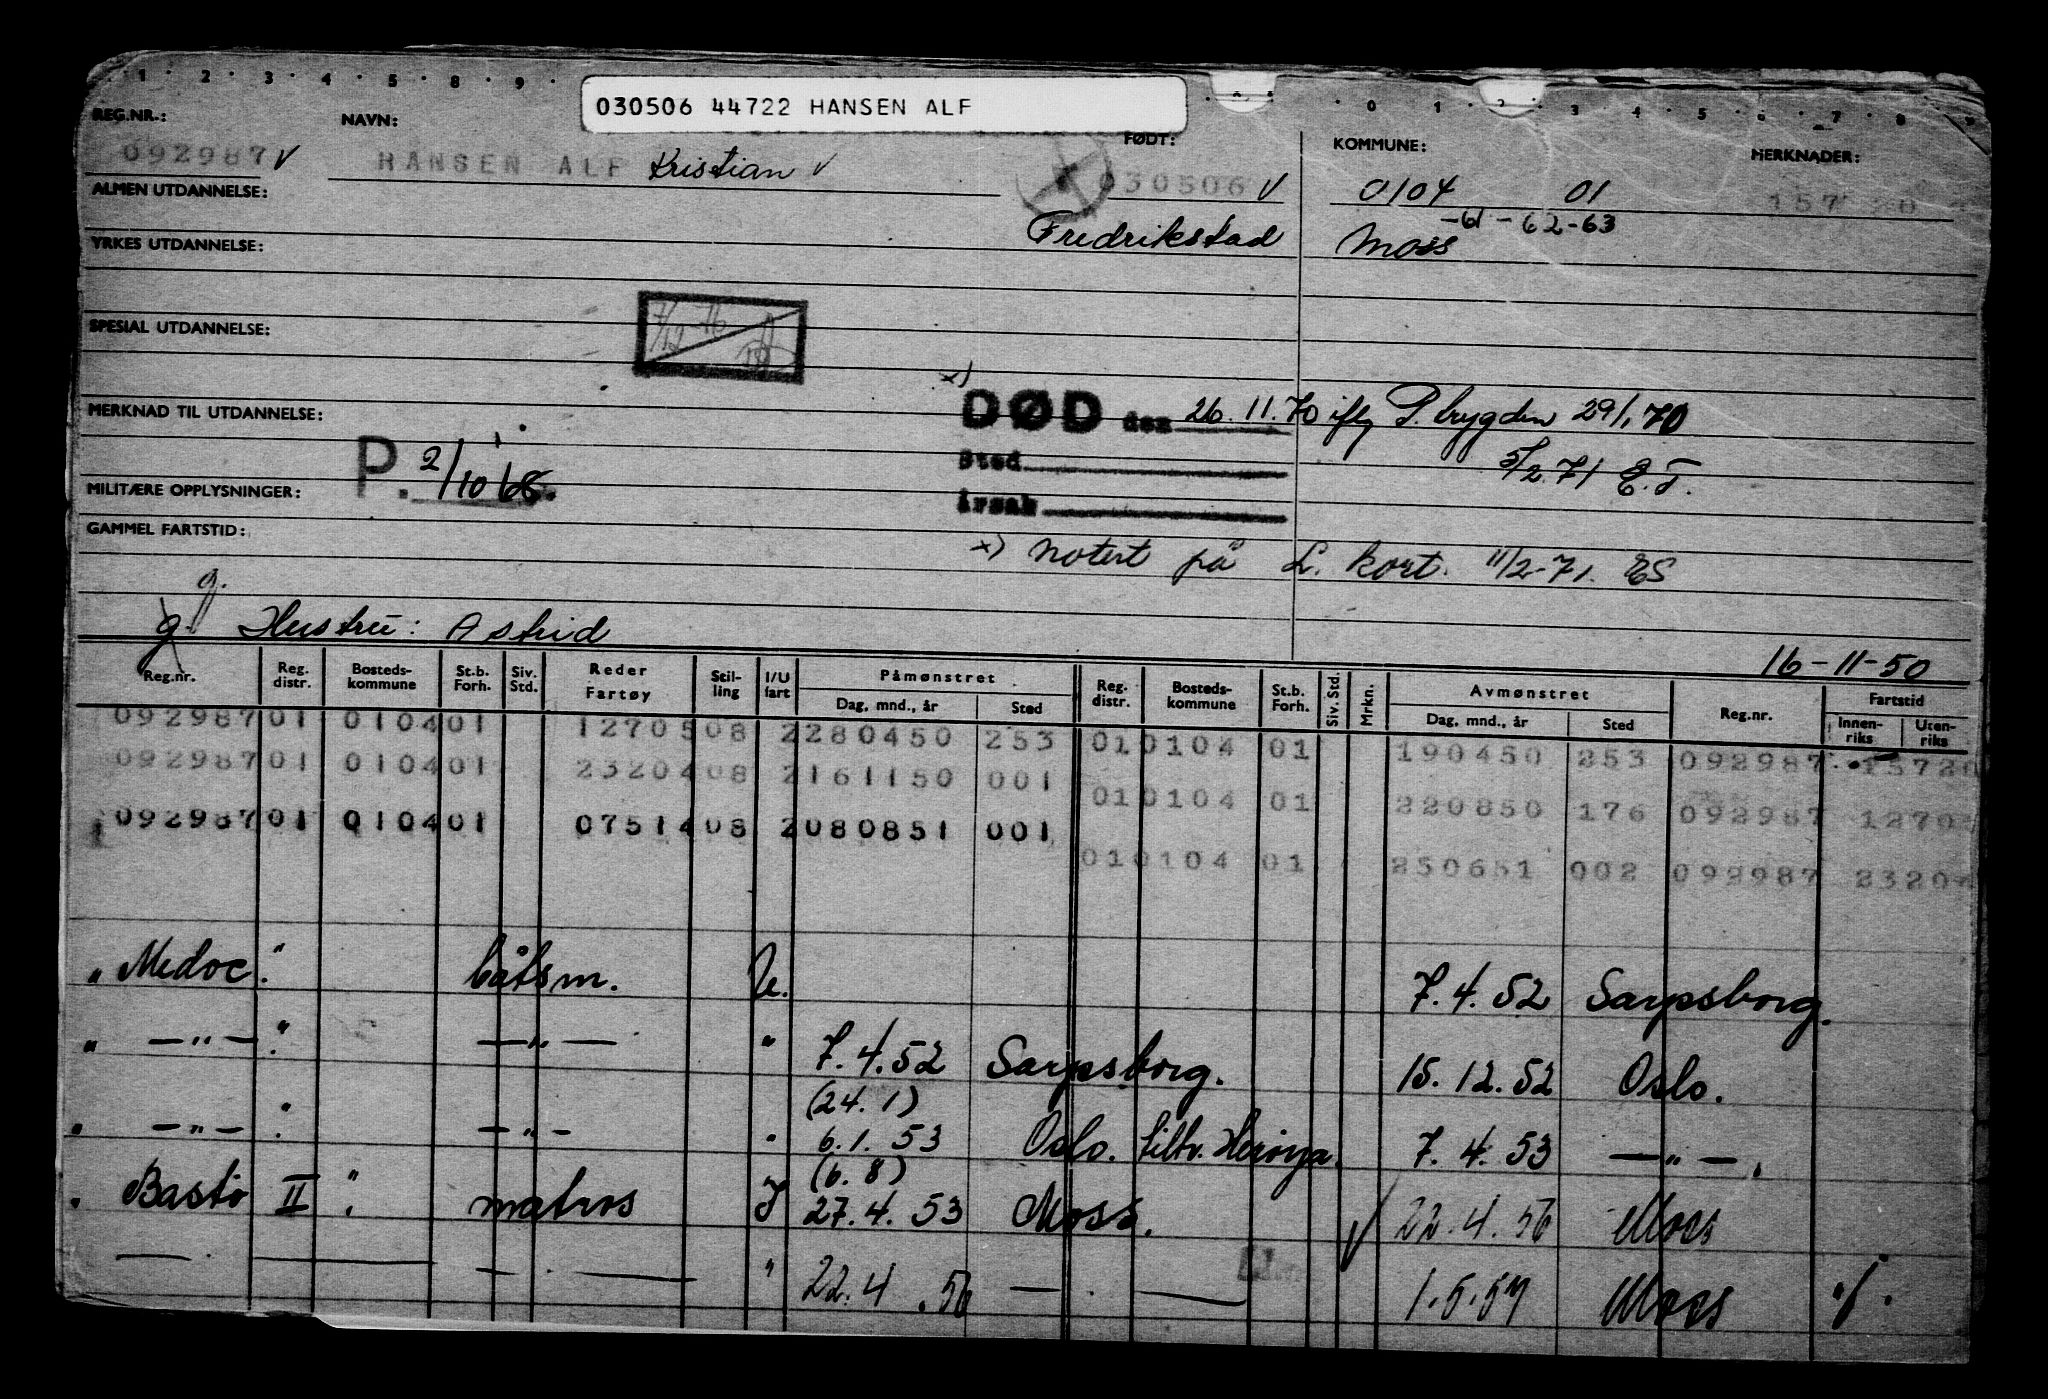 030506 44722 HANSEN ALF
REG.NR.: NAVN: FØDT: KOMMUNE: MERKNADER:
092987 HANSEN ALF Kristian 030506 0104 01 157 20
ALMEN UTDANNELSE: Fredrikstad Moss -61-62-63
YRKES UTDANNELSE:
SPESIAL UTDANNELSE:
MERKNAD TIL UTDANNELSE:
DØD den 26.11.70 iflg P.trygden 29/1.70
Sted 5/2.71 E.T.
P. 2/10 68.
MILITÆRE OPPLYSNINGER:
årsak
GAMMEL FARTSTID:
x) notert på L. kort. 11/2-71. ES
g. g. Hustru: Astrid
16-11-50
Reg.nr. Reg. distr. Bosteds-kommune St.b. Forh. Siv. Std. Reder Fartøy Stil-ling I/U fart Påmønstret Dag, mnd., år Sted Reg. distr. Bosteds-kommune St.b. Forh. Siv. Std. Mrkn. Avmønstret Dag, mnd., år Sted Reg.nr. Fartstid Innen-riks Uten-riks
092987 01 0104 01 12705 08 2 280450 253 01 0104 01 190450 253 092987 15720
092987 01 0104 01 23204 08 2 161150 001 01 0104 01 220850 176 092987 1270
092987 01 0104 01 07514 08 2 080851 001
01 0104 01 250651 002 092987 2320
" Medoc " båtsm. U. 7.4.52 Sarpsborg.
" —"— " —"— " 7.4.52 Sarpsborg. 15.12.52 Oslo.
(24.1)
" —"— " —"— " 6.1.53 Oslo. tiltr. Herøya. 7.4.53 —"—.
(6.8)
" Bastø II " matros I 27.4.53 Moss. 22.4.56 Moss
— — — — " 22.4.56 — — 1.5.57 Moss ./.